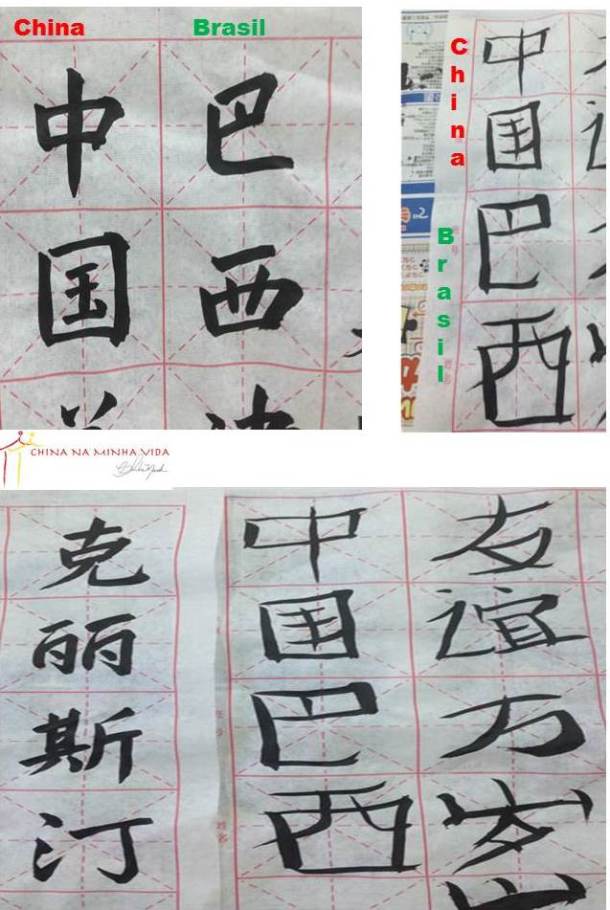 China
Brasil
中国
巴西
China
Brasil
中国巴西
CHINA NA MINHA VIDA
克丽斯汀
中国巴西
友谊万岁